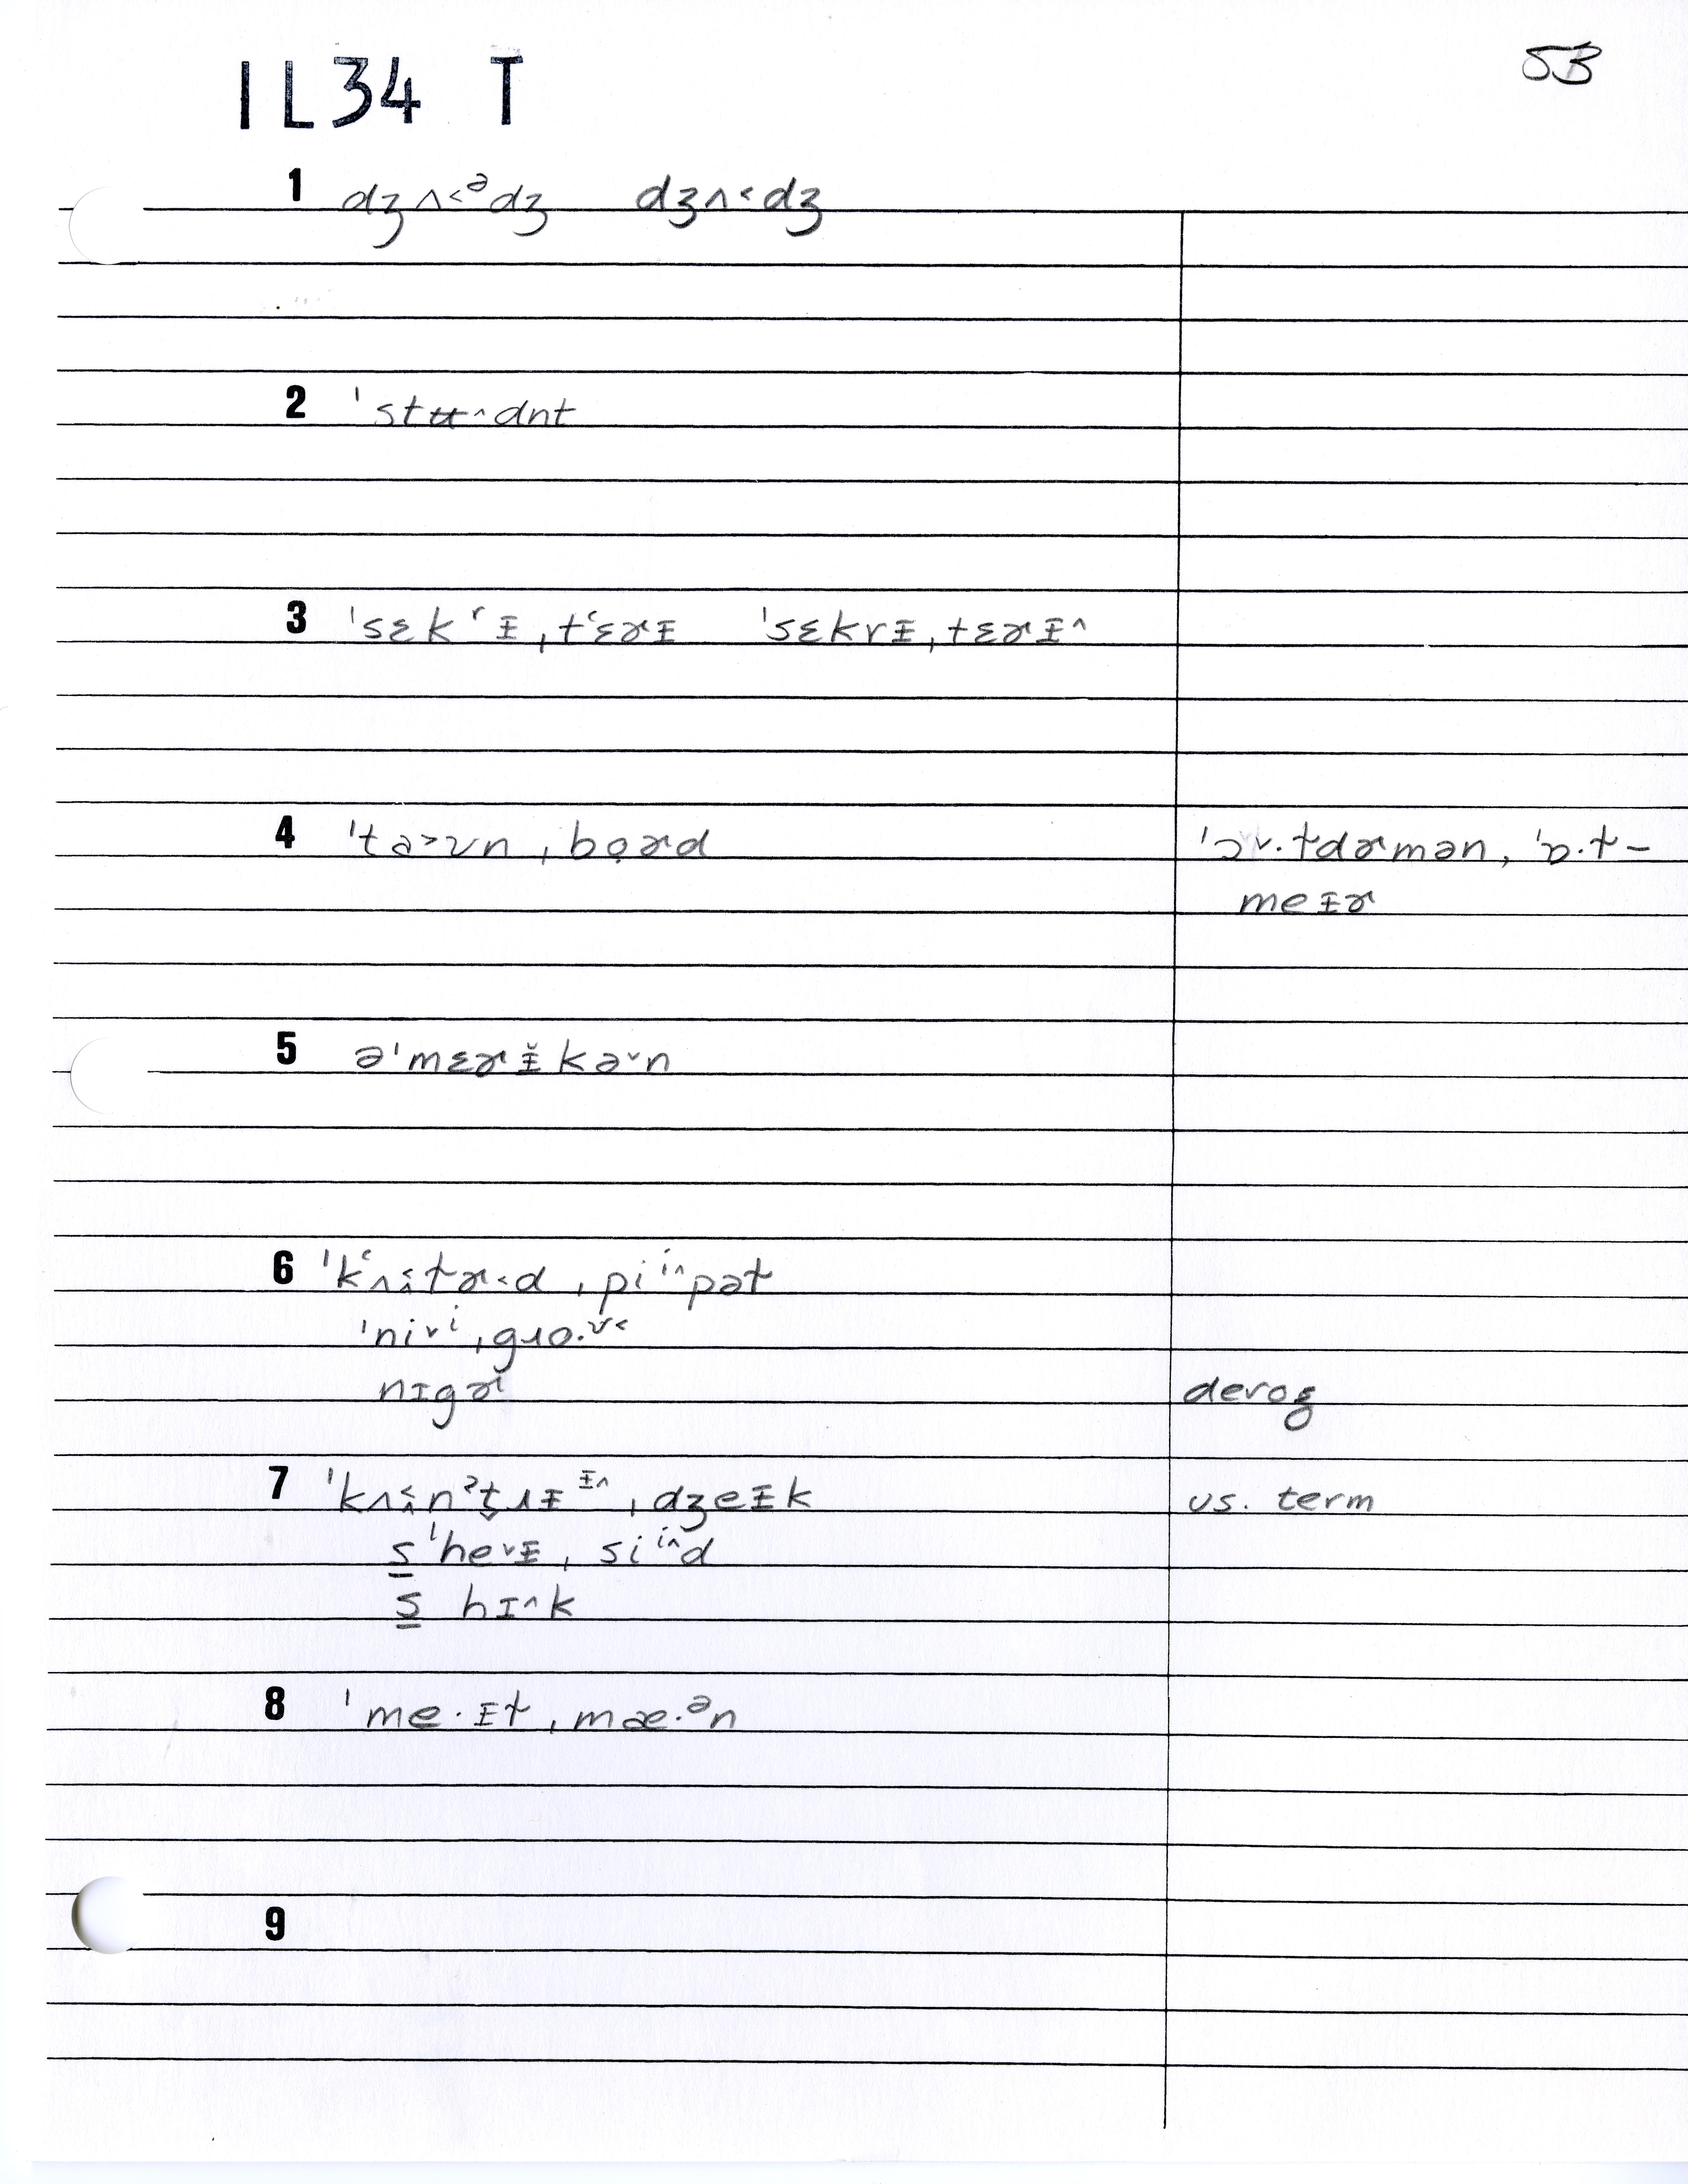 IL34 T 53
1 dʒʌ˂ᵊdʒ dʒʌ˂dʒ
2 ˈstʉ^dnt
3 ˈsɛkʳᵻˌtʿɛɚᵻ ˈsɛkrᵻˌtɛɚᵻ^
4 ˈtə˃ʊnˌbo̞ɚd ˈɔ˅·ɫdɚmən, ˈɒ·ɫ–
meᵻɚ
5 əˈmɛɚᵻ̆kə˅n
6 ˈkʿʌ˂̭ɫɚ˂dˌpiⁱ^pəɫ
ˈni˅ⁱˌgɹo·ᶷ˂
nɪgɚ derog
7 ˈkʌ˂̭nˀt̬ɹᵻᵻ^ˌdʒeᵻk us. term
s ˈhe˅ᵻˌsiⁱ^d
s hɪ^k
8 ˈme·ᵻɫˌmæ·ᵊn
9